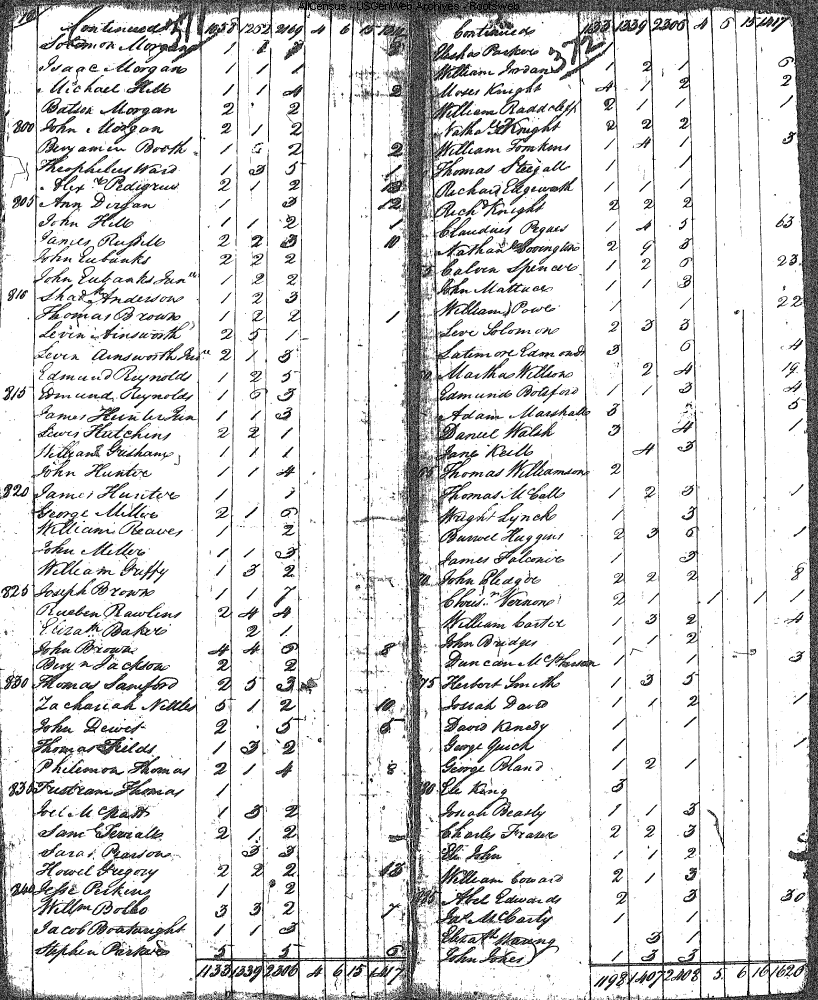 AllCensus - USGenWeb Archives - Rootsweb
Continued 371 1058 1252 2169 4 6 15
Solomon Morgan 1 1
Isaac Morgan 1 1 1
Michael Hill 1 1 4 2
Batson Morgan 2 2
800 John Morgan 2 1 2
Benjamin Booth 1 6 2 2
Theophelus Ward 1 3 5 1
Alexr Pedigrue 2 1 2 13
805 Ann Dirgan 1 3 12
John Hill 1 1 2 1
James Russell 2 2 3 10
John Eubanks 2 2 2
John Eubanks Junr 1 2 2
810 Shadh Anderson 1 2 3
Thomas Brown 1 2 2 1
Levin Ainsworth 2 5 1
Levin Ainsworth Junr 2 1 3
Edmund Reynolds 1 2 5
815 Edmund Reynolds 1 6 3
James Hunter Jun 1 1 3
Lewis Hutchins 2 2 1
William Grisham 1 1 1
John Hunter 1 1 4
820 James Hunter 1 1
George Miller 2 1 6
William Reaves 1 2
John Miller 1 1 3
William Guffy 1 3 2
825 Joseph Brown 1 1 7
Rueben Rawlins 2 4 4
Elizath Baker 2 1
John Brown 4 4 6 8
Benjn Jackson 2 2
830 Thomas Samford 2 5 3
Zachariah Nettles 5 1 2 10
John Dewit 2 5 5
Thomas Fields 1 3 2
Philemon Thomas 2 1 4 8
835 Tristram Thomas 1
Joel McNatt 1 3 2
Saml Terrall 2 1 2
Sarah Pearson 3 3
Howel Gregory 2 2 2 13
840 Jesse Perkins 1 2
Willm Bobbo 3 3 2 7
Jacob Boatwright 1 1 3
Stephen Parker 5 5 6
1133 1339 2306 4 6 15 1417
Continued 372 1133 1339 2306 4 6 15 1417
Elisha Parker
William Jordan 1 2 1 6
Moses Knight 4 1 2 2
William Raddcliff 2 1 1 1
Nathal Knight 2 2 2
William Tomkins 1 4 1 3
Thomas Steigall 1 1 1
Richard Edgeworth 1 1 1
Richd Knight 2 2 2
Claudius Pegues 1 4 5 63
Nathan 2 9 3
55 Calvin Spencer 1 2 6 23
John Mattuce 1 1 3
William Powe 1 1 22
Levi Solomon 2 3 3
Latimore Edmonds 3 6 4
60 Martha Wilson 2 4 19
Edmund Botsford 1 1 3 4
Adam Marshall 3 5
Daniel Walsh 3 4 1
Jane Kell 4 3
65 Thomas Williamson 2
Thomas McCall 1 2 3 1
Wright Lynch 1 3
Burwel Huggins 2 3 6 1
James Falconer 1 3
70 John Pledger 2 2 2 8
Christr Vernon 2 1 1 1 1
William Carter 1 3 2 4
John Bridges 1 1 2
Duncan McPherson 1 1 3
75 Herbert Smith 1 3 5
Josiah David 1 1 2 1
David Kenedy 1 1
George Guich 1 1
George Bland 1 2 1
80 Ele King 3
Josiah Beasly 1 1 3
Charles Fraser 2 2 3
Eli John 1 1 2
William Coward 2 1 3
885 Abel Edwards 2 3 30
Jas McCarty 1 1
Elizath Waring 3 1
John Jones 1 3 3
1198 1407 2408 5 6 16 1620